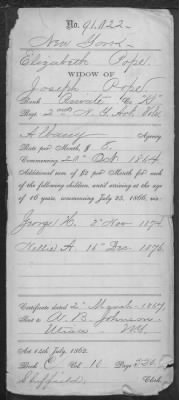 No. 91.022
New York
Elizabeth Pope.
WIDOW OF
Joseph Pope
Rank Private Co. "K"
Regt. 2nd N.Y. Art. Vols
Albany Agency
Rate per Month, $ 8.
Commencing 20th Oct. 1864
Additional sum of $2 per Month for each
of the following children, until arriving at the age
of 16 years, commencing July 25, 1866, viz:
George H. 3d Nov 1874
Nellie A. 15th Dec. 1876
Certificate dated 2d March 1867,
Sent to A. B. Johnson
Utica N.Y.
Act 14th July, 1862.
Book C Vol. 10 Page
Sheffield Clerk.